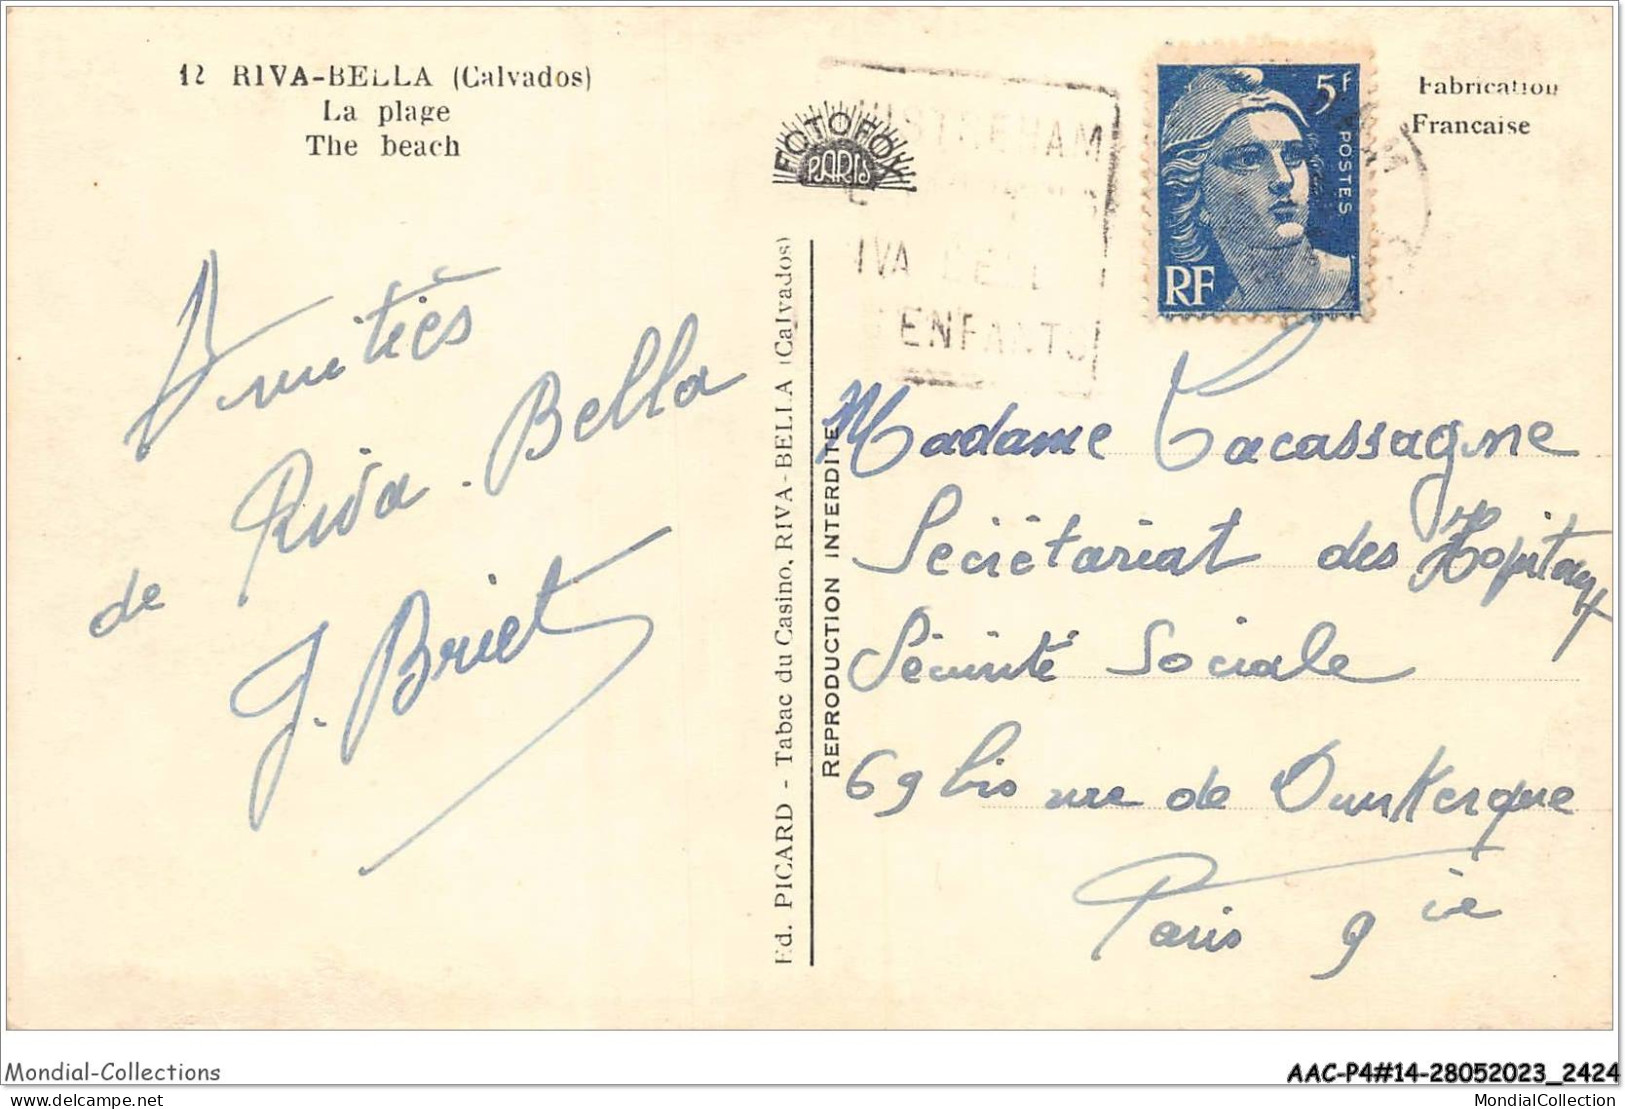 12 RIVA-BELLA (Calvados)
La plage
The beach
FOTOFOX
PARIS
5F
POSTES
RF
Fabrication
Francaise
ENFANTS
Amitiés
de Riva-Bella
J. Briet
Ed. PICARD - Tabac du Casino, RIVA-BELLA (Calvados)
REPRODUCTION INTERDITE
Madame Cacassagne
Secrétariat des Hopitaux
Sécurité Sociale
69 bis rue de Dunkerque
Paris 9ie
Mondial-Collections
AAC-P4#14-28052023_2424
delcampe.net
MondialCollection